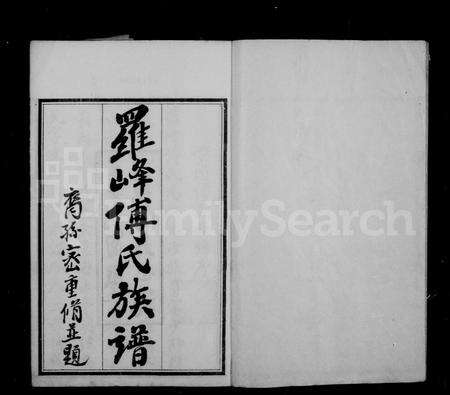 羅峰傅氏族譜
裔孫密重脩并題
FamilySearch